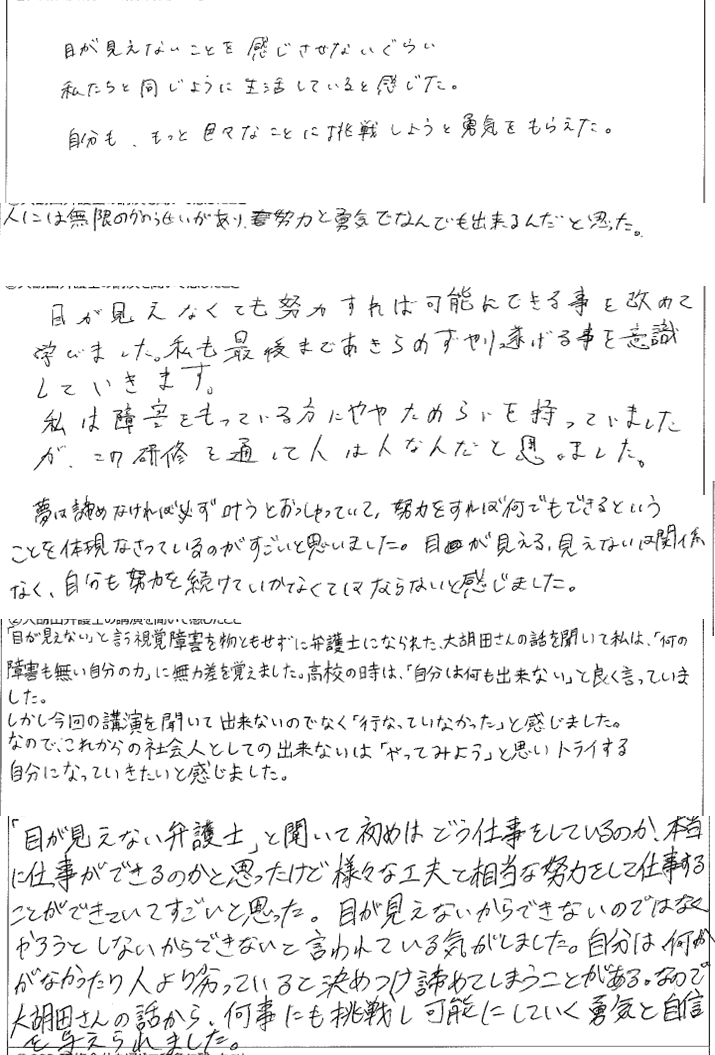 目が見えないことを感じさせないぐらい
私たちと同じように生活していると感じた。
自分も、もっと色々なことに挑戦しようと勇気をもらえた。
人には無限のかのうせいがあり、努力と勇気でなんでも出来るんだと思った。
②大胡田弁護士の講演を聞いて感じたこと
目が見えなくても努力すれば可能にできる事を改めて
学びました。私も最後まであきらめずやり遂げる事を意識
していきます。
私は障害をもっている方にややためらいを持っていました
が、この研修を通して人は人なんだと思いました。
夢は諦めなければ必ず叶うとおっしゃっていて、努力をすれば何でもできるという
ことを体現なさっているのがすごいと思いました。目が見える、見えないは関係
なく、自分も努力を続けていかなくてはならないと感じました。
②大胡田弁護士の講演を聞いて感じたこと
「目が見えない」と言う視覚障害を物ともせずに弁護士になられた、大胡田さんの話を聞いて私は、「何の
障害も無い自分の力」に無力差を覚えました。高校の時は、「自分は何も出来ない」と良く言っていま
した。
しかし今回の講演を聞いて出来ないのでなく「行なっていなかった」と感じました。
なので、これからの社会人としての出来ないは「やってみよう」と思いトライする
自分になっていきたいと感じました。
「目が見えない弁護士」と聞いて初めはどう仕事をしているのか、本当
に仕事ができるのかと思ったけど様々な工夫と相当な努力をして仕事する
ことができていてすごいと思った。目が見えないからできないのではなく
やろうとしないからできないと言われている気がしました。自分は何か
がなかったり人より劣っていると決めつけ諦めてしまうことがある。なので
大胡田さんの話から、何事にも挑戦し可能にしていく勇気と自信
を与えられました。